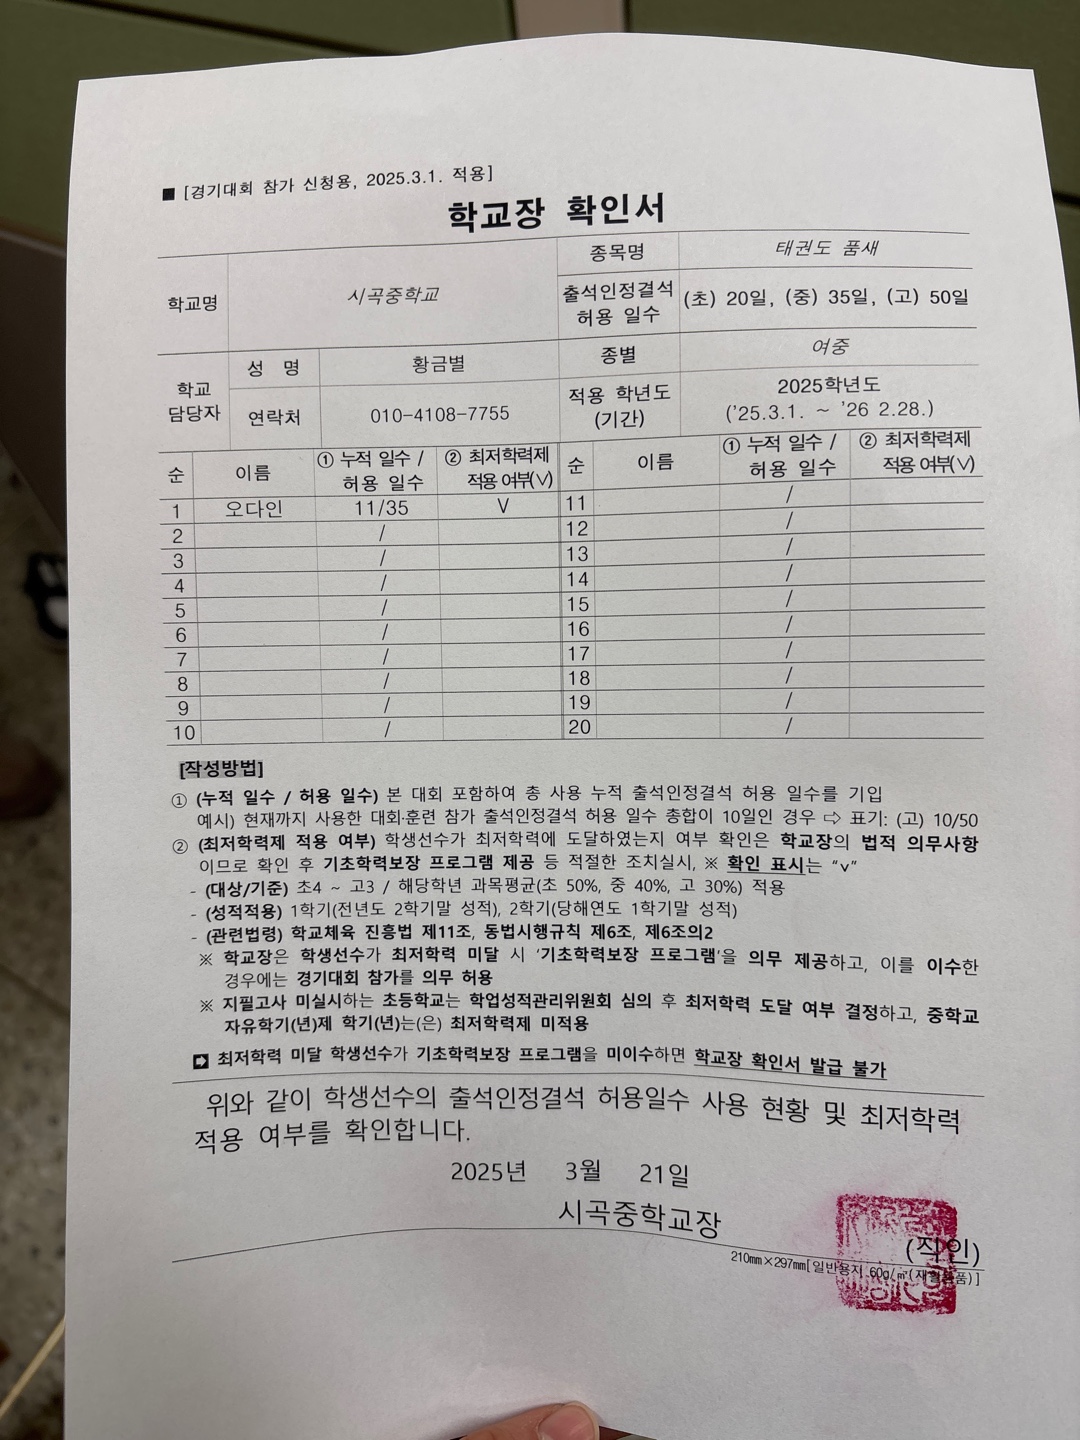 ■ [경기대회 참가 신청용, 2025.3.1. 적용]
학교장 확인서
학교명 시곡중학교 종목명 태권도 품새
출석인정결석 허용 일수 (초) 20일, (중) 35일, (고) 50일
학교 담당자 성 명 황금별 종별 여중
연락처 010-4108-7755 적용 학년도 (기간) 2025학년도 ('25.3.1. ~ '26 2.28.)
순 이름 ① 누적 일수 / 허용 일수 ② 최저학력제 적용 여부(∨) 순 이름 ① 누적 일수 / 허용 일수 ② 최저학력제 적용 여부(∨)
1 오다인 11/35 V 11 /
2 / 12 /
3 / 13 /
4 / 14 /
5 / 15 /
6 / 16 /
7 / 17 /
8 / 18 /
9 / 19 /
10 / 20 /
[작성방법]
① (누적 일수 / 허용 일수) 본 대회 포함하여 총 사용 누적 출석인정결석 허용 일수를 기입
예시) 현재까지 사용한 대회·훈련 참가 출석인정결석 허용 일수 종합이 10일인 경우 ⇨ 표기: (고) 10/50
② (최저학력제 적용 여부) 학생선수가 최저학력에 도달하였는지 여부 확인은 학교장의 법적 의무사항
이므로 확인 후 기초학력보장 프로그램 제공 등 적절한 조치실시, ※ 확인 표시는 "∨"
- (대상/기준) 초4 ~ 고3 / 해당학년 과목평균(초 50%, 중 40%, 고 30%) 적용
- (성적적용) 1학기(전년도 2학기말 성적), 2학기(당해연도 1학기말 성적)
- (관련법령) 학교체육 진흥법 제11조, 동법시행규칙 제6조, 제6조의2
※ 학교장은 학생선수가 최저학력 미달 시 '기초학력보장 프로그램'을 의무 제공하고, 이를 이수한
경우에는 경기대회 참가를 의무 허용
※ 지필고사 미실시하는 초등학교는 학업성적관리위원회 심의 후 최저학력 도달 여부 결정하고, 중학교
자유학기(년)제 학기(년)는(은) 최저학력제 미적용
➡ 최저학력 미달 학생선수가 기초학력보장 프로그램을 미이수하면 학교장 확인서 발급 불가
위와 같이 학생선수의 출석인정결석 허용일수 사용 현황 및 최저학력
적용 여부를 확인합니다.
2025년 3월 21일
시곡중학교장
(직인)
210㎜×297㎜[일반용지 60g/㎡(재활용품)]